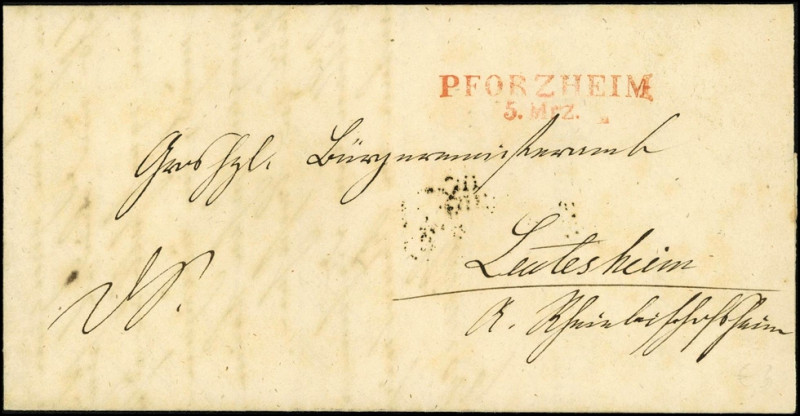 PFORZHEIM
5. Mrz.
Großhzl. Bürgermeisteramt
Leutesheim
A. Rheinbischofsheim